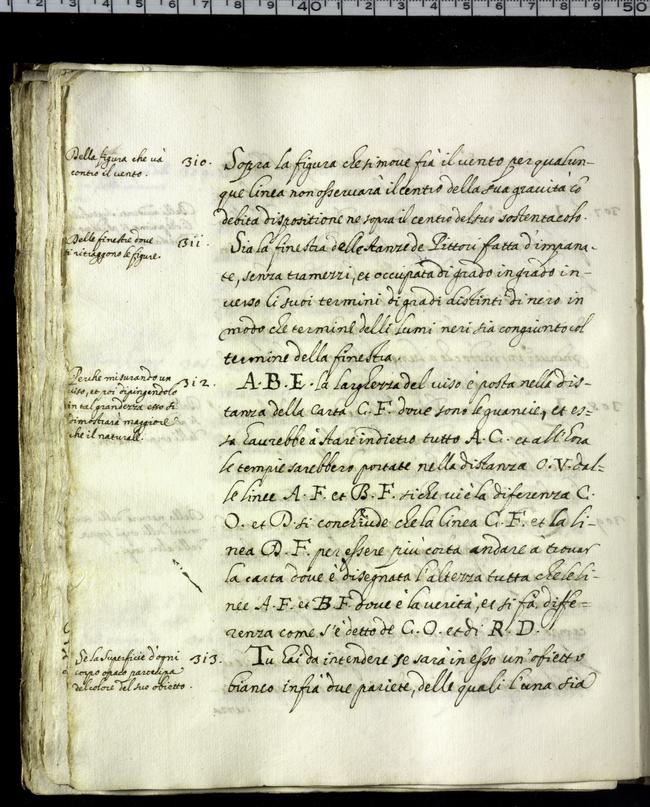 Della figura che và
contro il vento.
310.
Sopra la figura che si move fia il vento per qualun-
que linea non osservarà il centro della sua gravità cō
debita dispositione ne sopra il centro del suo sostentacolo.
Delle finestre dove
si ritraggono le figure.
311.
Sia la finestra delle stanze de Pittori fatta d'impana-
te, senza tramezzi, et occupata di grado in grado in-
verso li suoi termini di gradi distinti di nero in
modo che termine delli lumi neri sia congiunto col
termine della finestra.
Perche misurando un
viso, et poi dipingendolo
in tal grandezza esso si
dimostrarà maggiore
che il naturale.
312.
A.B.E. la larghezza del viso è posta nella dis-
tanza della carta C.F. dove sono le guancie, et es-
sa haurebbe à stare indietro tutto A.C. et all'hora
le tempie sarebbero portate nella distanza O.V. dal-
le linee A.F. et B.F. si che vi è la diferenza C.
O. et D. si conchiude che la linea C.F. et la li-
nea D.F. per essere più corta andare à trovar
la carta dove è disegnata l'altezza tutta che le li-
nee A.F. et B.F. dove è la verità, et si fà diffe-
renza come s'è detto de C.O. et di R.D.
Se la Superficie d'ogni
corpo opaco partecipa
del colore del suo obietto.
313.
Tu hai da intendere se sarà in esso un'obietto
bianco infrà due pariete, delle quali l'una sia